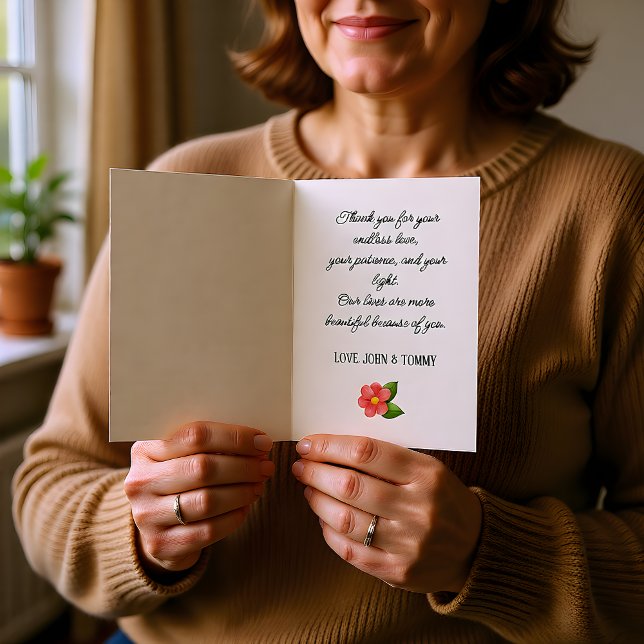 Thank you for your
endless love,
your patience, and your
light.
Our lives are more
beautiful because of you.
LOVE, JOHN & TOMMY